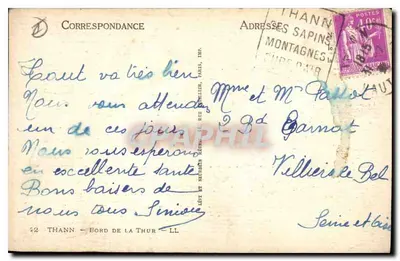 CORRESPONDANCE
ADRESSE
THANN
SES SAPINS
MONTAGNES
Tout va très bien
Nous vous attendons
un de ces jours
Nous vous esperons
en excellente santé
Bons baisers de
nous tous Simone
Mme et Mr
2 Bd Carnot
Villiers le Bel
Seine et Oise
22 THANN - BORD DE LA THUR - LL